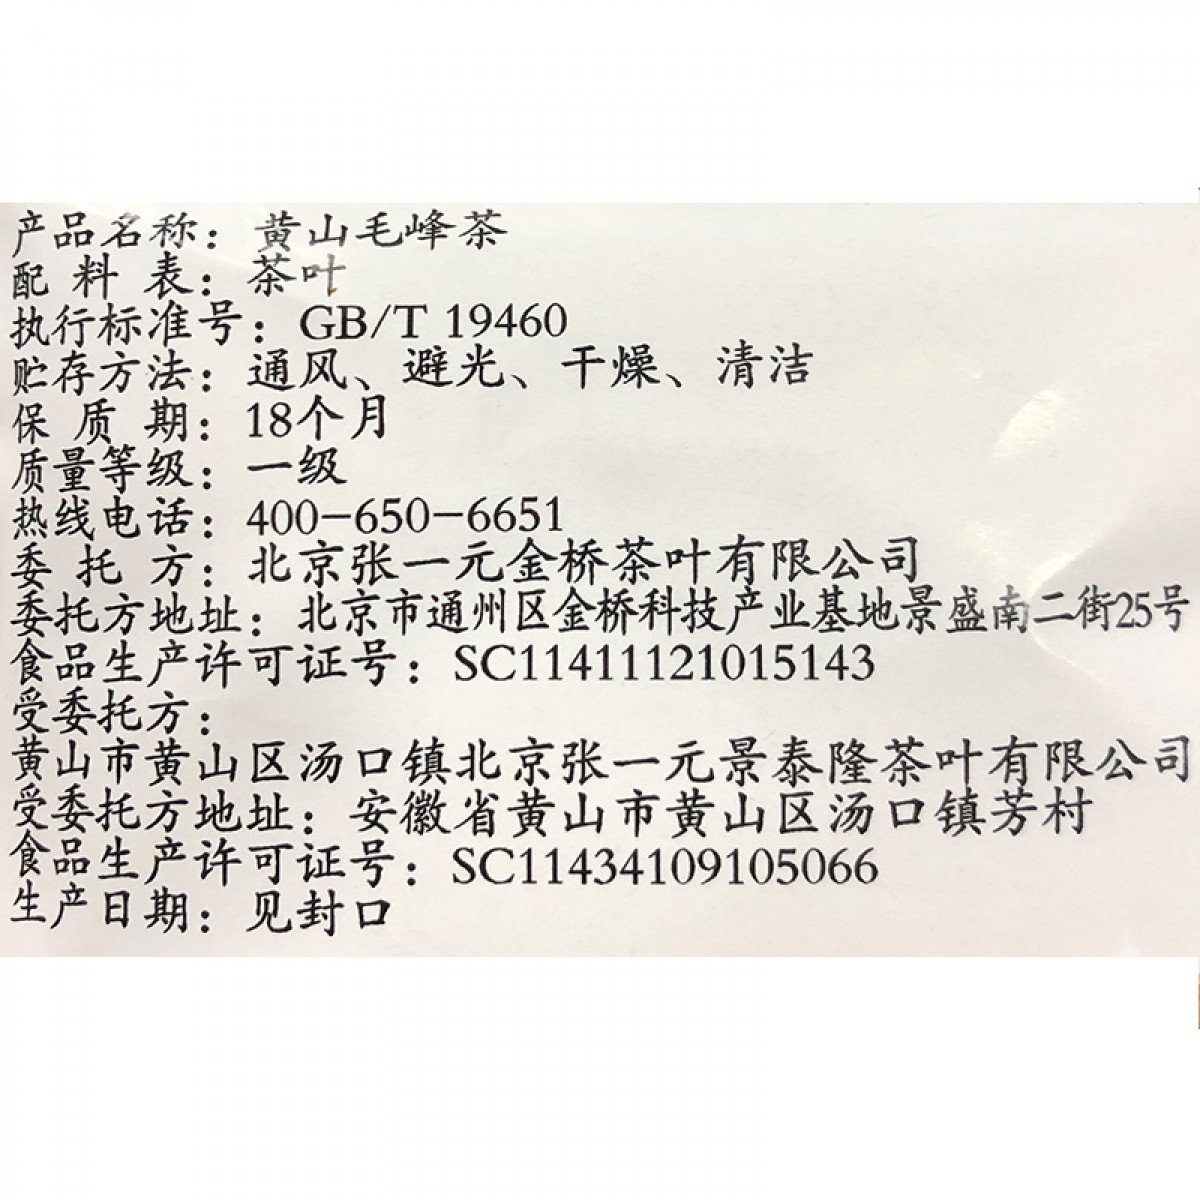 产品名称：黄山毛峰茶
配料表：茶叶
执行标准号：GB/T 19460
贮存方法：通风、避光、干燥、清洁
保质期：18个月
质量等级：一级
热线电话：400-650-6651
委托方：北京张一元金桥茶叶有限公司
委托方地址：北京市通州区金桥科技产业基地景盛南二街25号
食品生产许可证号：SC11411121015143
受委托方：
黄山市黄山区汤口镇北京张一元景泰隆茶叶有限公司
受委托方地址：安徽省黄山市黄山区汤口镇芳村
食品生产许可证号：SC11434109105066
生产日期：见封口